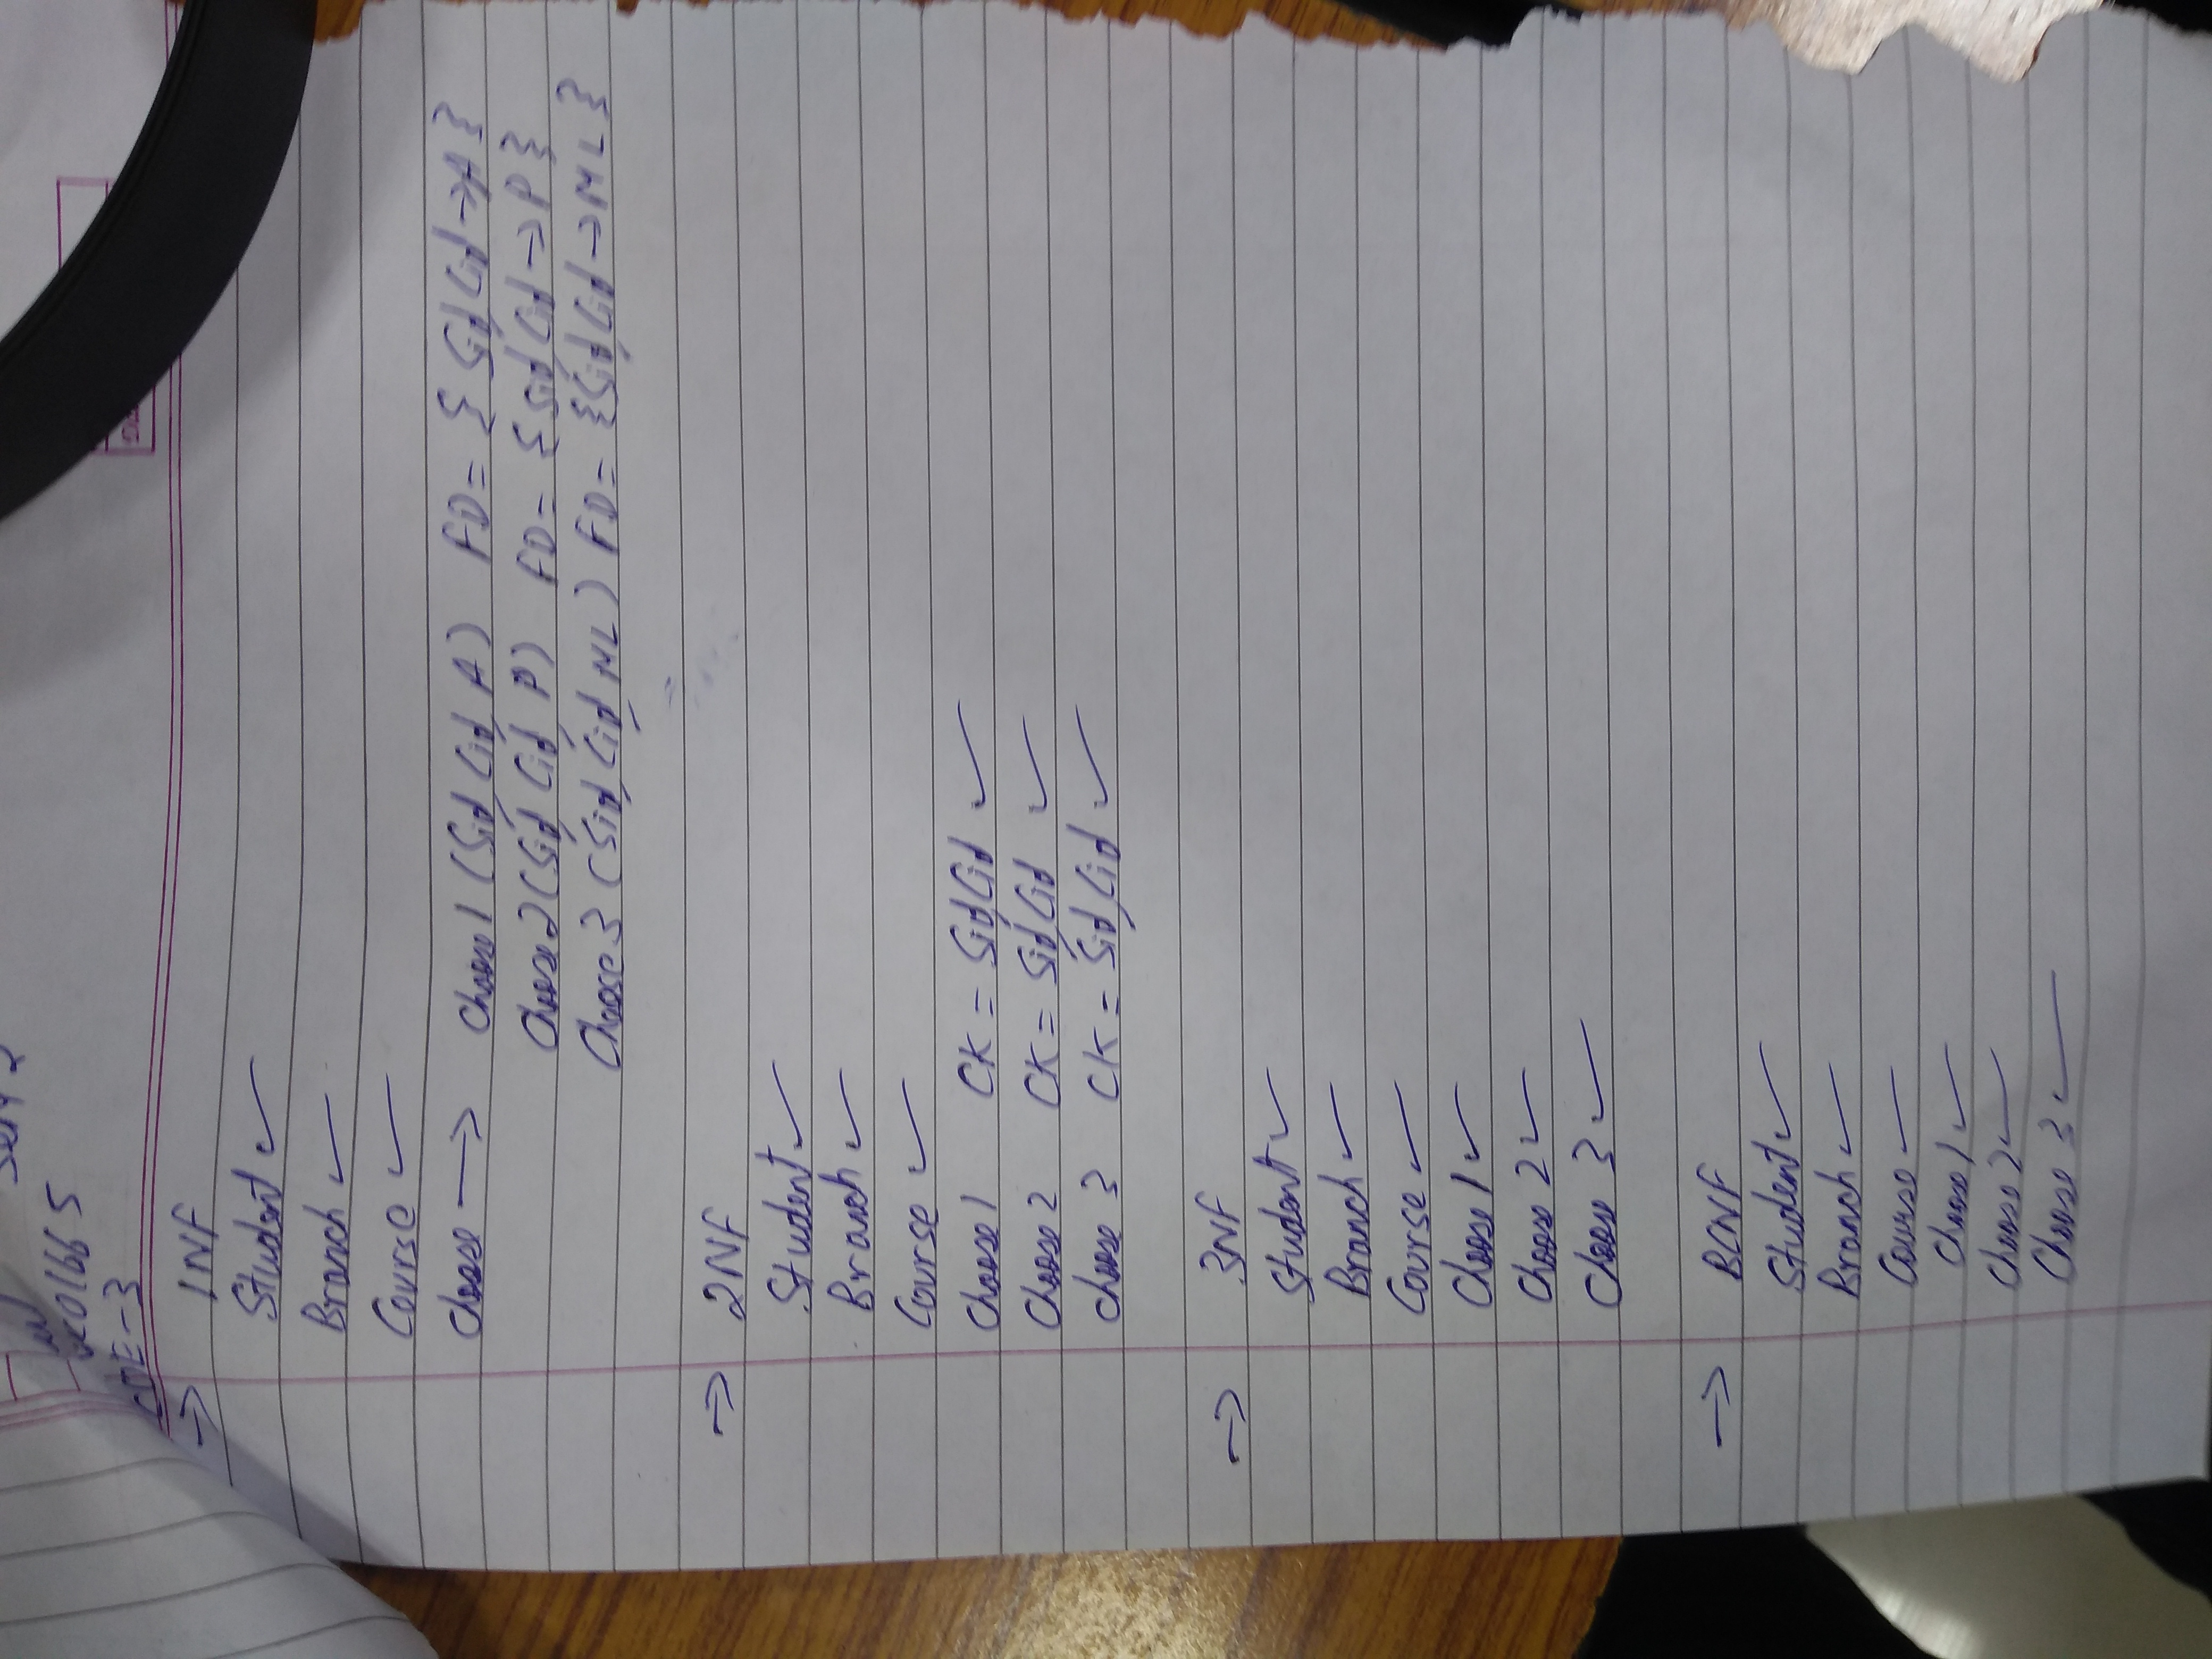 CDE-3
→ 1NF
Student ✓
Branch ✓
Course ✓
Choose → Choose 1 (Sid Cid A) FD = { Sid Cid → A }
Choose 2 (Sid Cid P) FD = { Sid Cid → P }
Choose 3 (Sid Cid ML) FD = { Sid Cid → ML }
→ 2NF
Student ✓
Branch ✓
Course ✓
Choose 1 CK = Sid Cid ✓
Choose 2 CK = Sid Cid ✓
Choose 3 CK = Sid Cid ✓
→ 3NF
Student ✓
Branch ✓
Course ✓
Choose 1 ✓
Choose 2 ✓
Choose 3 ✓
→ BCNF
Student ✓
Branch ✓
Course ✓
Choose 1 ✓
Choose 2 ✓
Choose 3 ✓